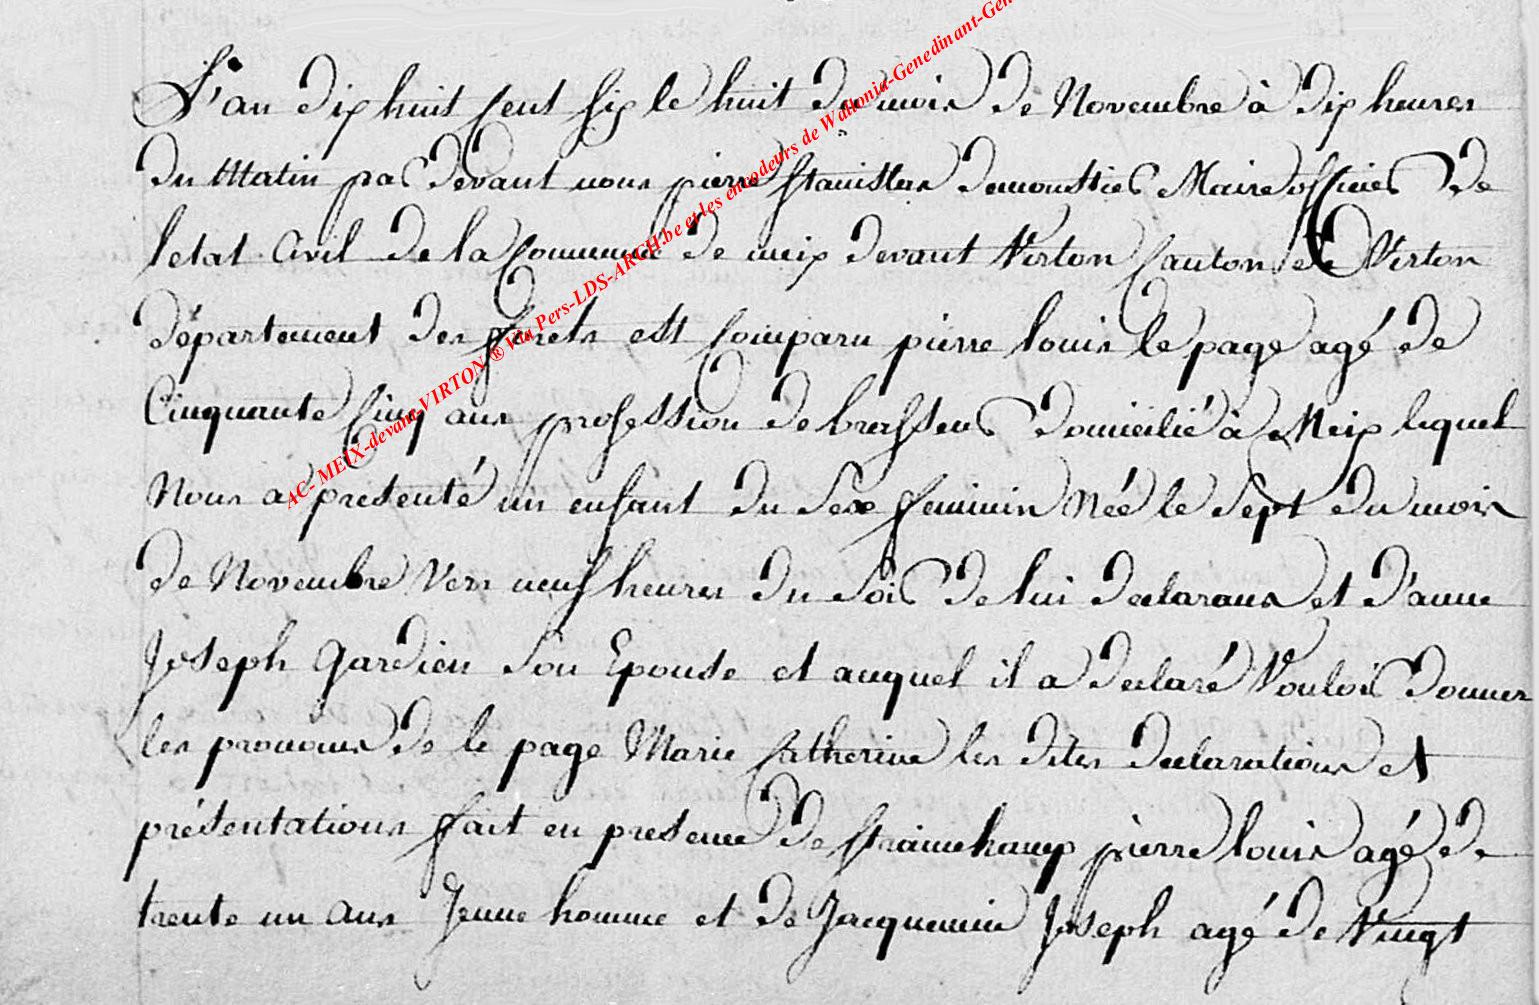 L'an dix huit cent six le huit du mois de Novembre à dix heures
du Matin par devant nous pierre stanislas demoustier Maire officier de
letat Civil de la Commune de meix devant Virton Canton de Virton
département des forets est comparu pierre louis le page agé de
Cinquante Cinq ans profession de brasseur domicilié à Meix lequel
Nous a presenté un enfant du Sexe feminin Née le Sept du mois
de Novembre Vers neuf heures du Soir de lui declarans et d'anne
Joseph Gardien Son Epouse et auquel il a declaré Vouloir donner
les pronoms de le page Marie Catherine les dites declarations et
présentations fait en presence de pierre louis agé de
trente un ans Jeune homme et de Jacquemin Joseph agé de Vingt
AC- MEIX-devant-VIRTON ® Via Pers-LDS-ARCH.be et les encodeurs de Wallonia-Genedinant-Gen